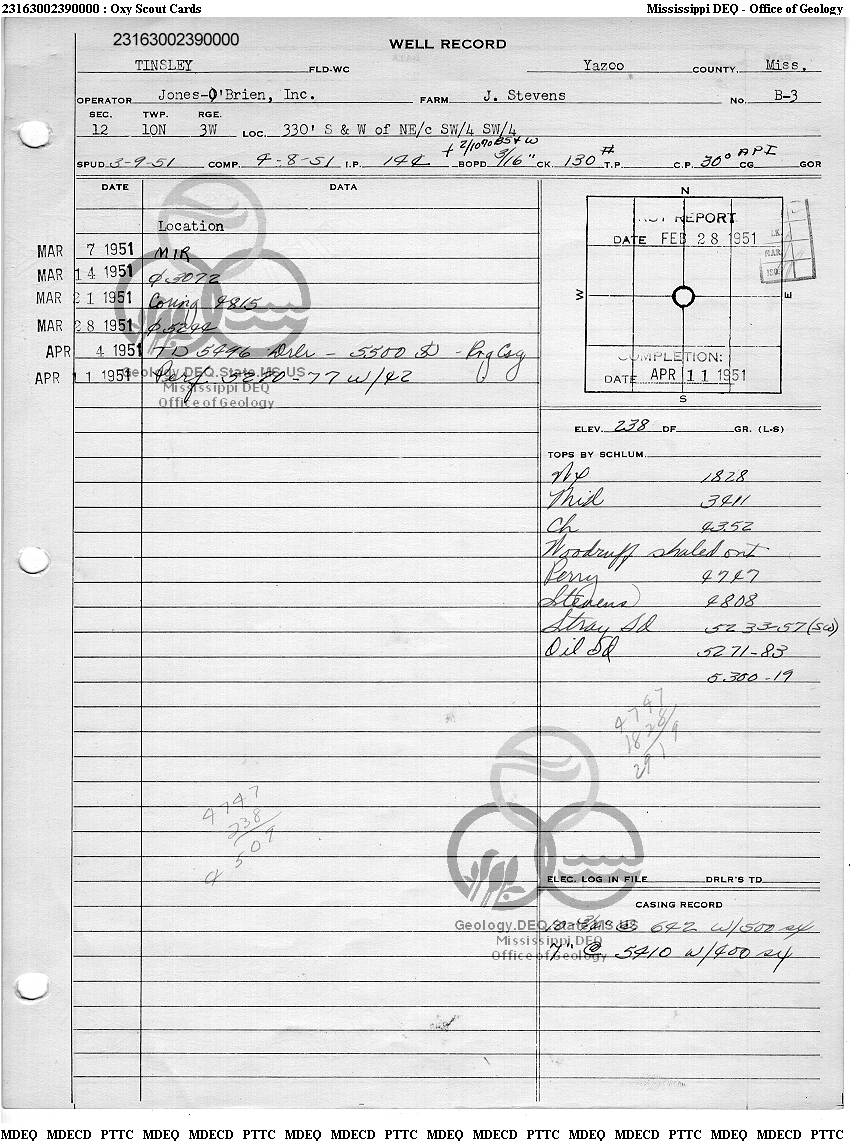 23163002390000 : Oxy Scout Cards Mississippi DEQ - Office of Geology
23163002390000
WELL RECORD
TINSLEY FLD-WC Yazoo COUNTY, Miss.
OPERATOR Jones-O'Brien, Inc. FARM J. Stevens NO. B-3
SEC. TWP. RGE.
12 10N 3W LOC. 330' S & W of NE/c SW/4 SW/4
+ 2/10% BS&W
SPUD 3-9-51 COMP. 4-8-51 I.P. 144 BOPD 9/16" CK. 130# T.P. C.P. 30° API CG GOR
DATE DATA
Location
MAR 7 1951 MIR
MAR 14 1951 ⌀ 3072
MAR 21 1951 Coring 4815
MAR 28 1951 ⌀ 5294
APR 4 1951 TD 5496 Drlr - 5500 S - Prg Csg
APR 11 1951 Perf. 5270-77 w/42
N
FIRST REPORT
DATE FEB 28 1951
W E
COMPLETION:
DATE APR 11 1951
S
ELEV. 238 DF GR. (L-S)
TOPS BY SCHLUM.
Wx 1828
Mid 3411
Ch 4352
Woodruff shaled out
Perry 4747
Stevens 4808
Stray Sd 5233-57 (SW)
Oil Sd 5271-83
5300-19
4747
1828
2919
4747
238
4509
ELEC. LOG IN FILE DRLR'S TD
CASING RECORD
10 3/4" @ 642 w/500 sx
7" @ 5410 w/400 sx
Geology.DEQ.State.MS.US
Mississippi DEQ
Office of Geology
Geology.DEQ.State.MS.US
Mississippi DEQ
Office of Geology
MDEQ MDECD PTTC MDEQ MDECD PTTC MDEQ MDECD PTTC MDEQ MDECD PTTC MDEQ MDECD PTTC MDEQ MDECD PTTC